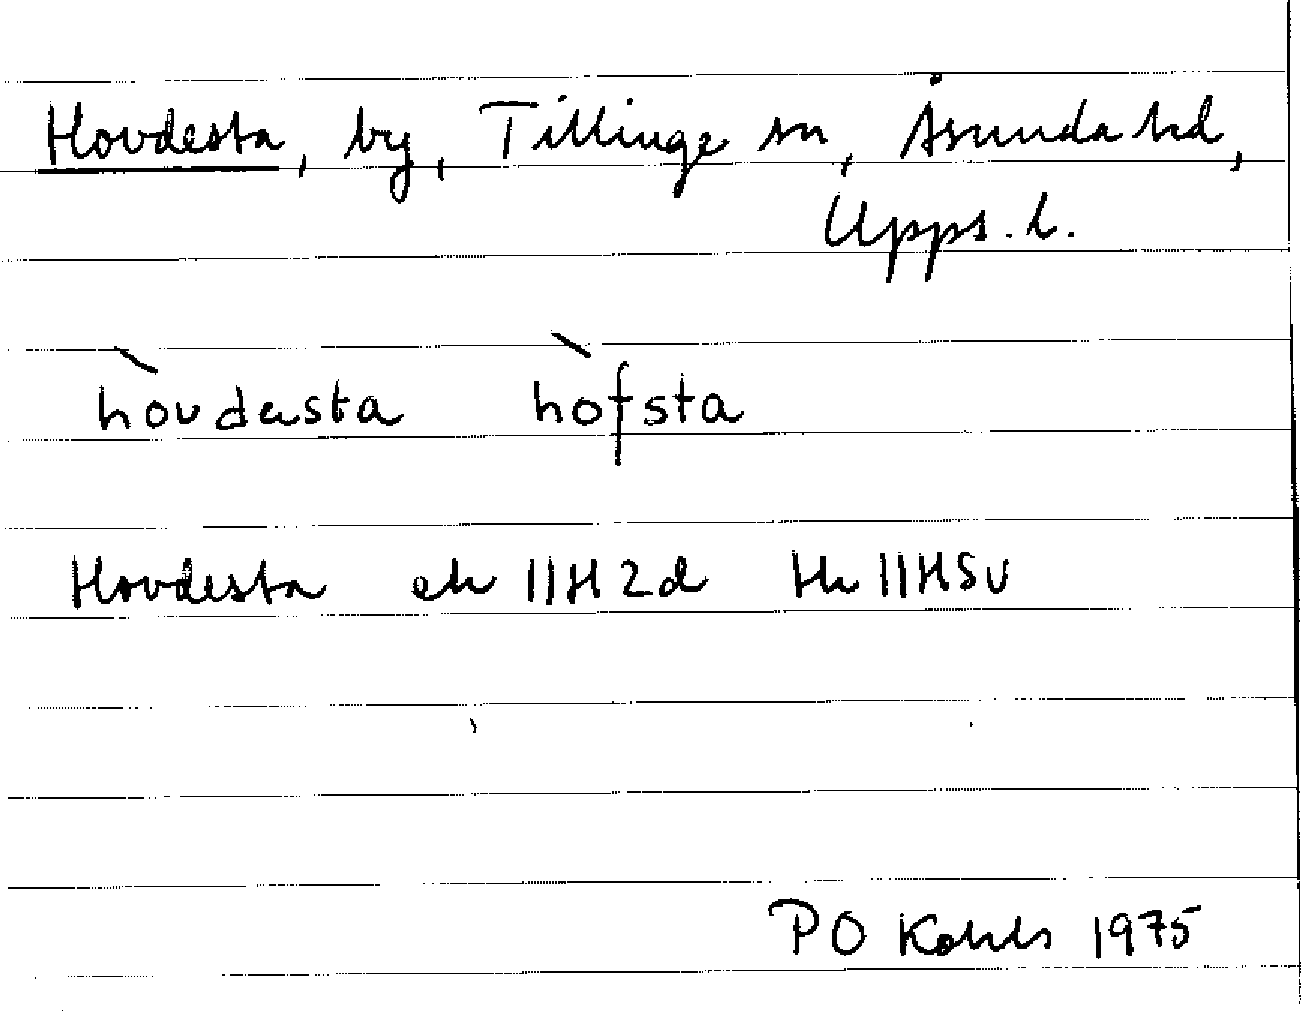 Hovdesta, by, Tillinge sn, Åsunda hd,
Upps. l.
hòvdesta hòfsta
Hovdesta ek 11H2d Hk 11H5v
PO 1975